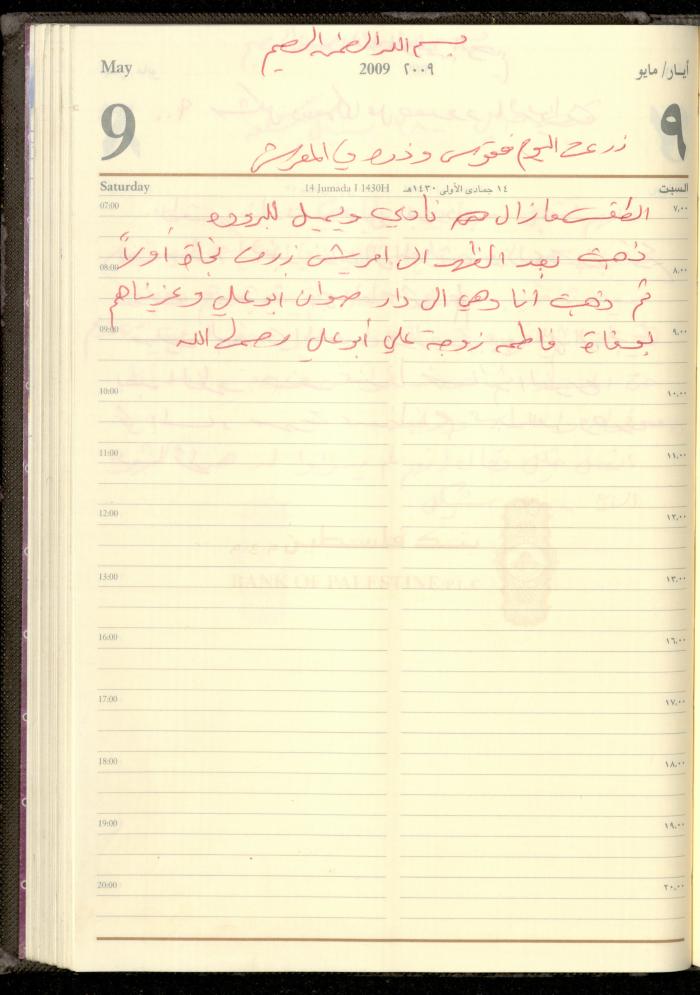 بسم الله الرحمن الرحيم
May
2009 ٢٠٠٩
أيار/ مايو
9
٩
زرعت اليوم فقوس وذره في المفرش
Saturday
14 Jumada I 1430H
١٤ جمادى الأولى ١٤٣٠هـ
السبت
07:00 الطقس مازال نادي ويميل للبروده ٧,٠٠
ذهبت بعد الظهر الى امريش زرت نجاة أولاً
08:00 ٨,٠٠
ثم ذهبت أنا وهي الى دار صوان أبو علي وعزيناهم
09:00 ٩,٠٠
بوفاة فاطمه زوجة علي أبو علي رحمها الله
10:00 ١٠,٠٠
11:00 ١١,٠٠
12:00 ١٢,٠٠
BANK OF PALESTINE P.L.C
13:00 ١٣,٠٠
16:00 ١٦,٠٠
17:00 ١٧,٠٠
18:00 ١٨,٠٠
19:00 ١٩,٠٠
20:00 ٢٠,٠٠